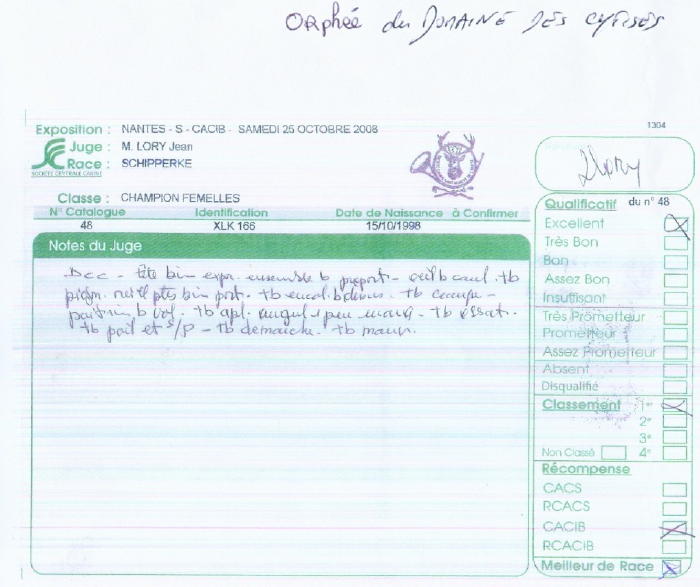 ORphée du DOMAINE DES CYTISES
1304
Exposition : NANTES - S - CACIB - SAMEDI 25 OCTOBRE 2008
Juge : M. LORY Jean
Race : SCHIPPERKE
SOCIÉTÉ CENTRALE CANINE
Classe : CHAMPION FEMELLES
N° Catalogue Identification Date de Naissance à Confirmer
48 XLK 166 15/10/1998
Notes du Juge
Dcc - tête bien expr. ensemble b proport - oeil b coul. tb
pigm. oreilles ptes bien port. tb encol. b dessus. tb
b vol. tb apl. angul 1 peu
tb poil et s/p - tb démarche. tb
Lory
Qualificatif du n° 48
Excellent
Très Bon
Bon
Assez Bon
Insuffisant
Très Prometteur
Prometteur
Assez Prometteur
Absent
Disqualifié
Classement 1er
2e
3e
Non Classé 4e
Récompense
CACS
RCACS
CACIB
RCACIB
Meilleur de Race